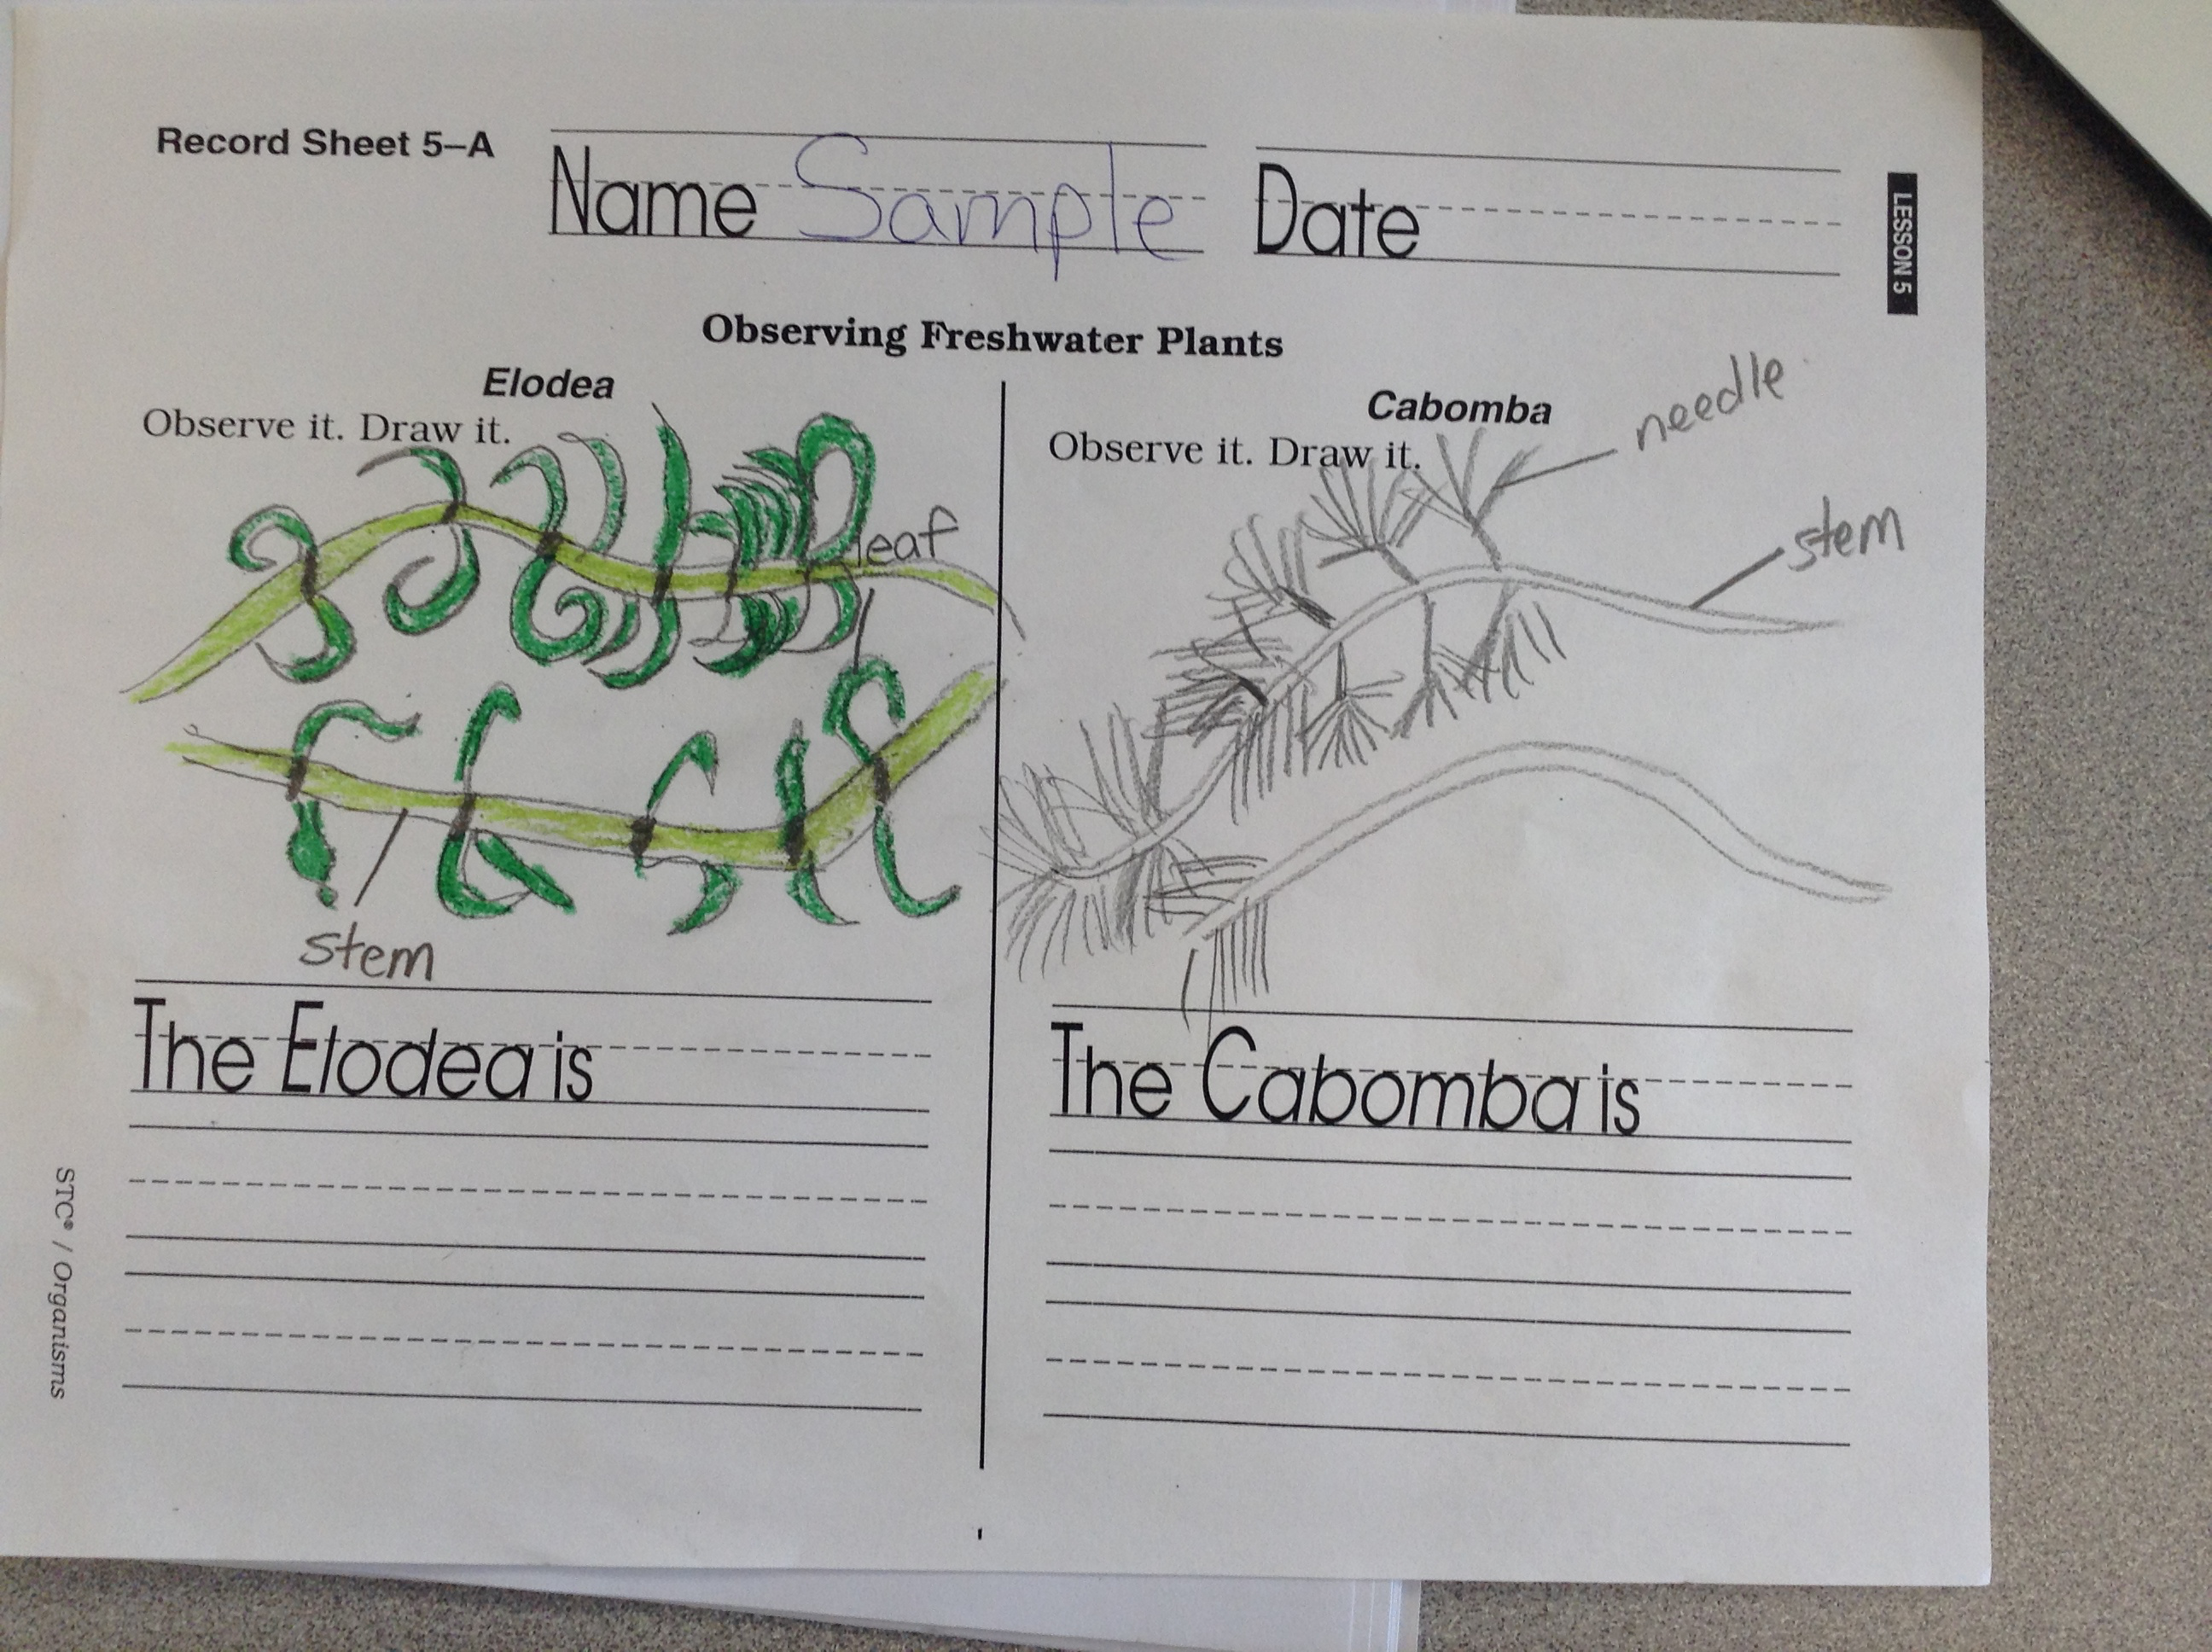 Record Sheet 5–A
Name Sample
Date
LESSON 5
Observing Freshwater Plants
Elodea
Observe it. Draw it.
leaf
stem
The Elodea is
Cabomba
Observe it. Draw it.
needle
stem
The Cabomba is
STC® / Organisms